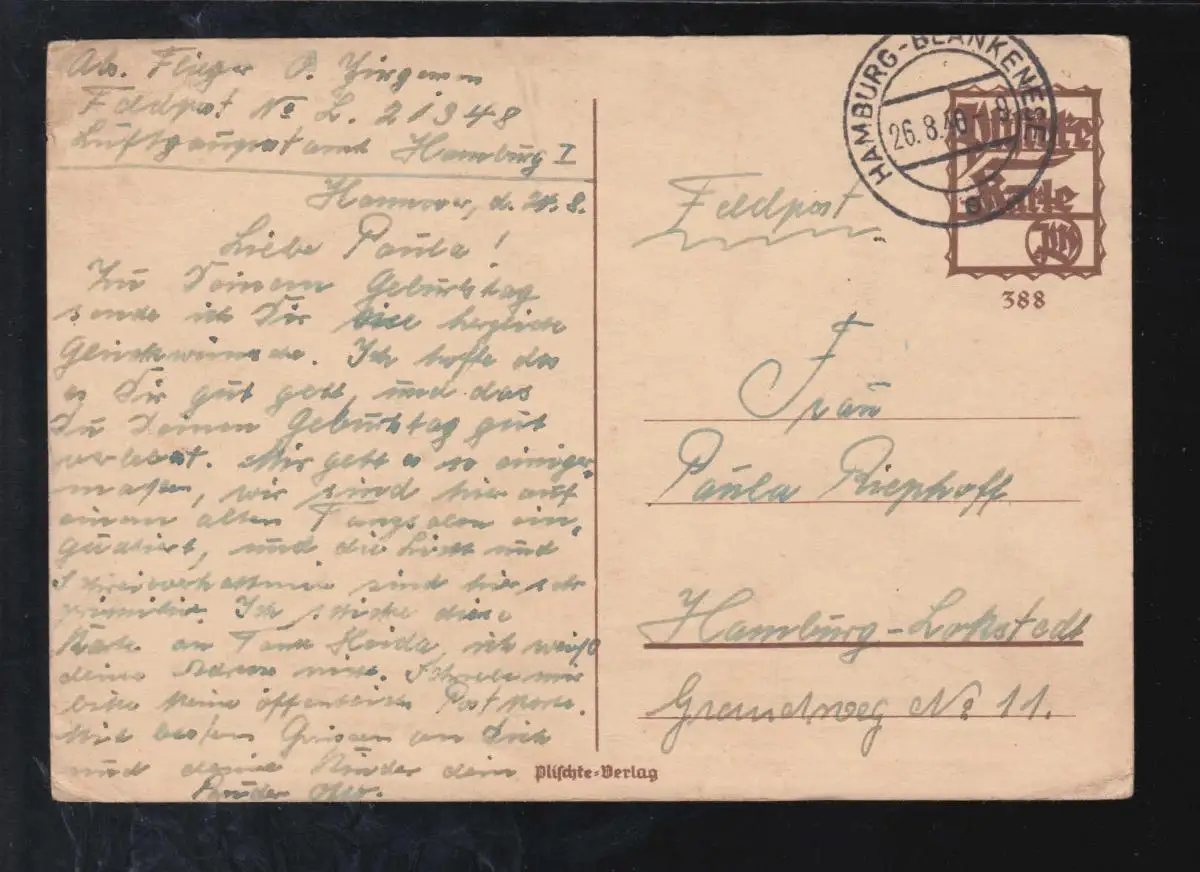 Abs. Flieger O. Jürgens
Feldpost No L. 21348
Luftgaupostamt Hamburg I
Hannover, d. 24. 8.
Liebe Paula!
Zu Deinem Geburtstag
sende ich Dir herzliche
Glückwünsche. Ich hoffe das
es Dir gut geht, und das
Du Deinen Geburtstag gut
verlebst. Mir geht es so einiger-
maßen, wir sind hier auf
einem alten ein-
und die Licht und
sind hier sehr
primitiv. Ich schicke diese
Karte an Tante Heida, ich weiß
deine Adresse nicht. Schreibe mir
bitte keine öffentliche Postkarte.
Mit besten Grüssen an Dich
und deine Kinder dein
Bruder Otto.
HAMBURG-BLANKENESE
26.8.40-9
Plischte
Karte
388
Feldpost
Frau
Paula Riephoff
Hamburg-Lokstedt
Grandweg No 11.
Plischte-Verlag